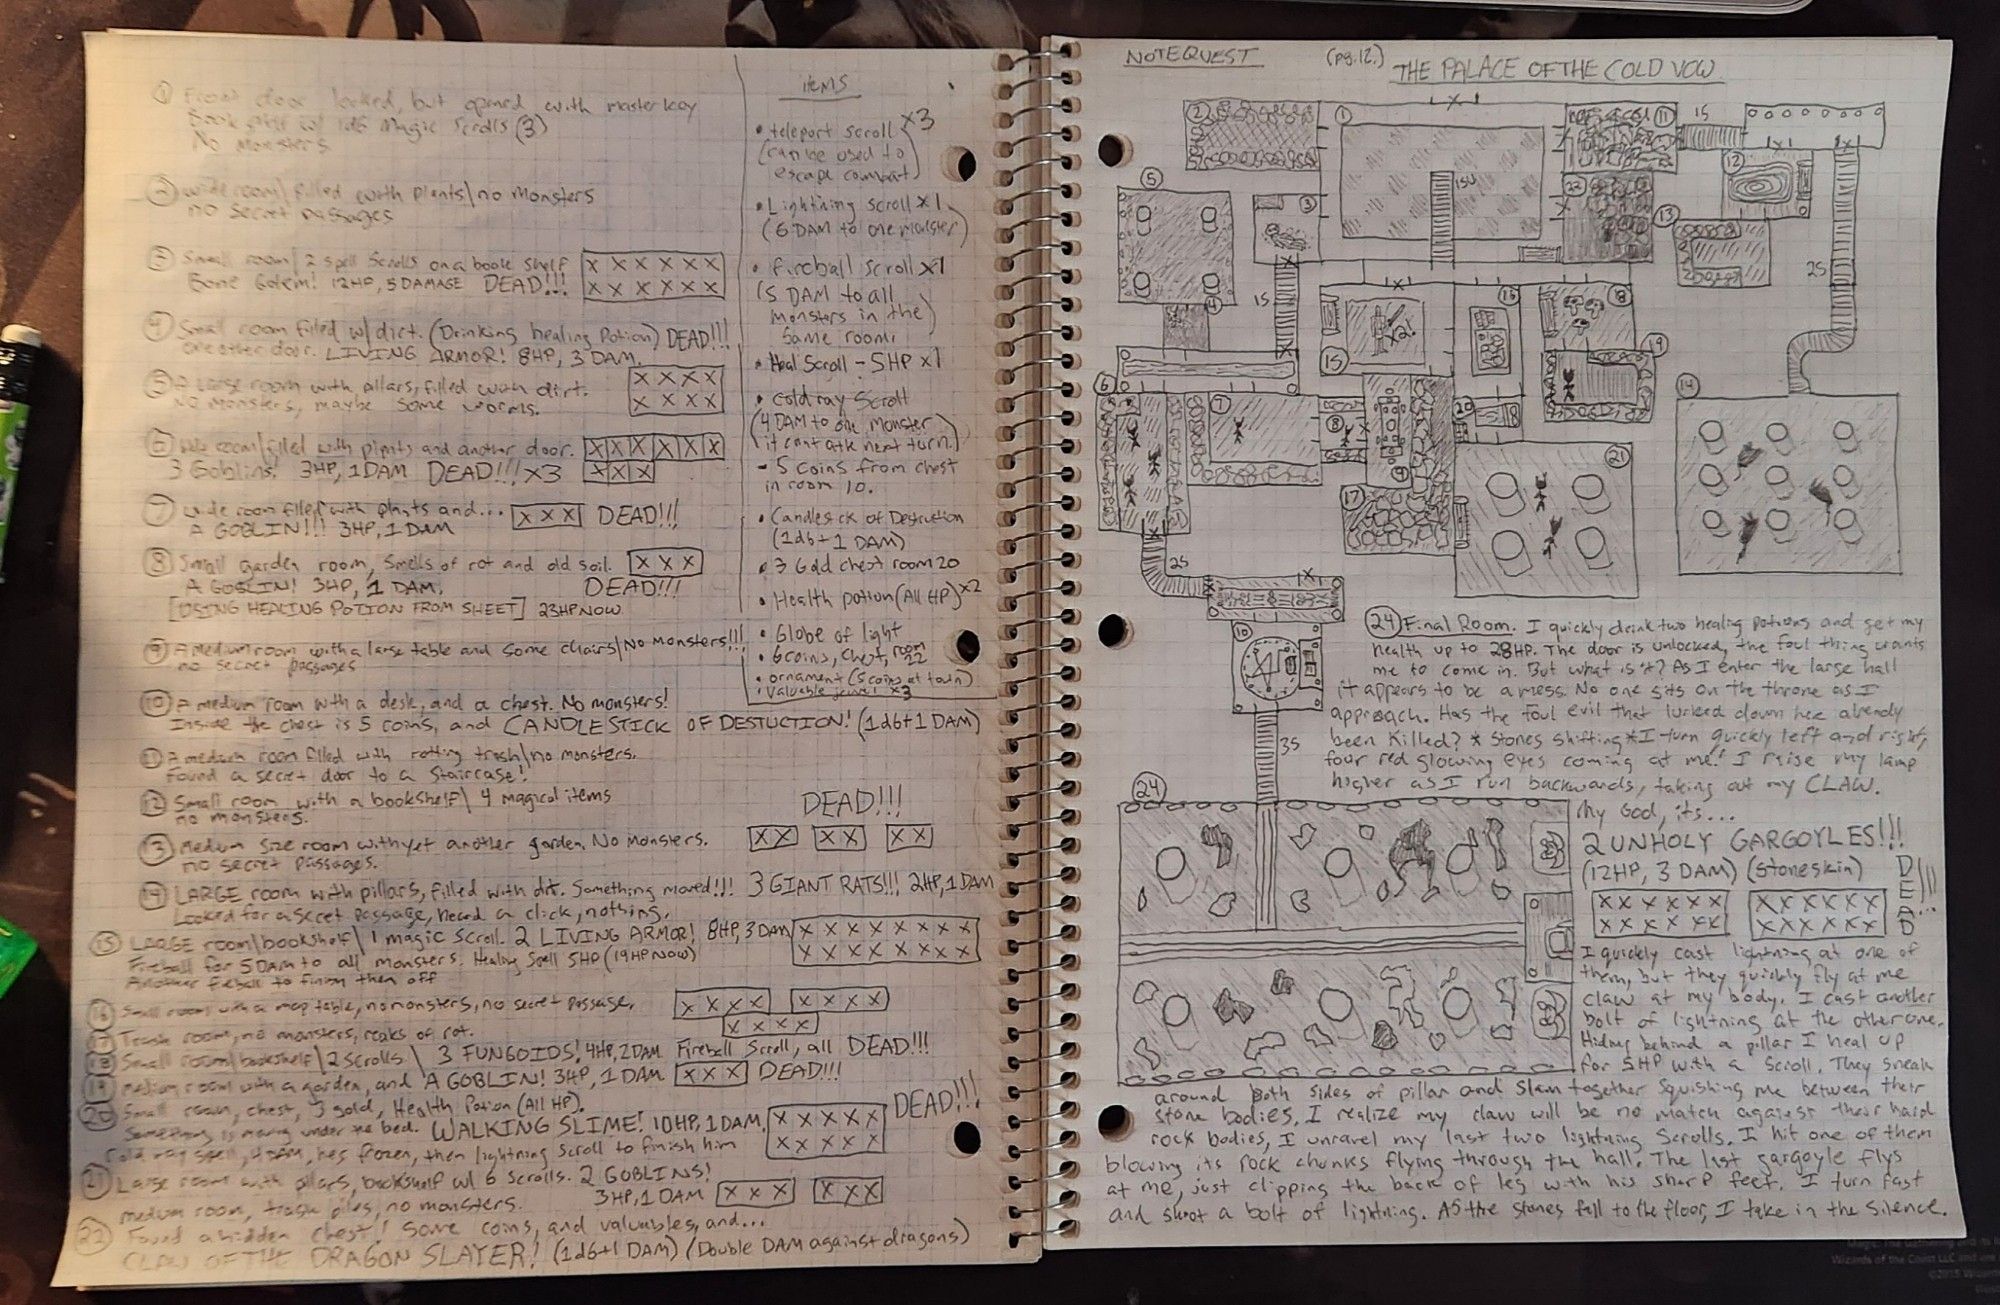 ① Front door locked, but opened with master key
Book shelf w/ 1d6 Magic Scrolls (3)
No Monsters
② wide room \ filled with plants \ no monsters
no secret passages
③ Small room \ 2 spell scrolls on a book shelf
Bone Golem! 12HP, 5 DAMAGE DEAD!!!
X X X X X X
X X X X X X
④ Small room filled w/ dirt. (Drinking healing Potion) DEAD!!!
one other door. LIVING ARMOR! 8HP, 3 DAM.
X X X X
X X X X
⑤ A Large room with pillars, filled with dirt.
NO monsters, maybe some worms.
⑥ Wide room \ filled with plants and another door.
3 Goblins! 3HP, 1DAM DEAD!!! X3
X X X X X X
X X X
⑦ Wide room filled with plants and...
A GOBLIN!!! 3HP, 1 DAM
X X X DEAD!!!
⑧ Small garden room, smells of rot and old soil.
A GOBLIN! 3HP, 1 DAM. DEAD!!!
X X X
[USING HEALING POTION FROM SHEET] 23HP NOW
⑨ A medium room with a large table and some chairs \ No Monsters!!!
no secret passages
⑩ A medium room with a desk, and a chest. No monsters!
Inside the chest is 5 coins, and CANDLESTICK OF DESTUCTION! (1d6+1 DAM)
⑪ A medium room filled with rotting trash \ no monsters.
Found a secret door to a staircase!
⑫ Small room with a bookshelf \ 4 magical items
no monsters.
DEAD!!!
⑬ Medium size room with yet another garden. No Monsters.
no secret passages.
X X X X X X
⑭ LARGE room with pillars, filled with dirt. Something moved!!! 3 GIANT RATS!!! 2HP, 1 DAM
Looked for a secret passage, heard a click, nothing.
⑮ LARGE room \ bookshelf \ 1 magic scroll. 2 LIVING ARMOR! 8HP, 3 DAM
Fireball for 5 DAM to all monsters. Healing Spell 5HP (19HP NOW)
Another fireball to finish them off
X X X X X X X X
X X X X X X X X
⑯ Small room with a map table, no monsters, no secret passage.
X X X X X X X X
X X X X
⑰ Trash room, no monsters, reaks of rot.
⑱ Small room \ bookshelf \ 2 scrolls \ 3 FUNGOIDS! 4HP, 2DAM Fireball Scroll, all DEAD!!!
⑲ medium room with a garden, and A GOBLIN! 3HP, 1 DAM X X X DEAD!!!
⑳ Small room, chest, 3 gold, Health Potion (All HP).
Something is moving under the bed. WALKING SLIME! 10HP, 1DAM. DEAD!!!
X X X X X
X X X X X
Cold ray spell, 4 DAM, hes frozen, then lightning scroll to finish him
㉑ Large room with pillars, bookshelf w/ 6 scrolls. 2 GOBLINS!
3HP, 1 DAM X X X X X X
medium room, trash piles, no monsters.
㉒ Found a hidden chest! Some coins, and valuables, and...
CLAW OF THE DRAGON SLAYER! (1d6+1 DAM) (Double DAM against dragons)
items
• teleport scroll X3
(can be used to
escape combat)
• Lightning scroll X1
(6 DAM to one monster)
• fireball scroll X1
(5 DAM to all
monsters in the
same room)
• Heal Scroll - 5HP X1
• cold ray Scroll
(4 DAM to one monster
it cant atk next turn.)
- 5 coins from chest
in room 10.
• Candlesick of Destruction
(1d6+1 DAM)
• 3 Gold chest room 20
• Health potion (All HP) X2
• Globe of light
• 6 coins, chest, room
22
• ornament (5 coins at town)
• Valuable jewel X3
NOTEQUEST (pg. 12.) THE PALACE OF THE COLD VOW
② ① X ⑪ 1S
⑤ ③ 15U ㉒ ⑫ ⑬
④ 1S X ⑯ ⑱ 2S
⑥ ⑮ X2! ⑲ ⑭
⑦ ⑧ ⑨ ⑳ ㉑
⑰
2S X
⑩
3S
㉔ Final Room. I quickly drink two healing potions and get my
health up to 28HP. The door is unlocked, the foul thing wants
me to come in. But what is it? As I enter the large hall
it appears to be a mess. No one sits on the throne as I
approach. Has the foul evil that lurked down here already
been killed? * Stones shifting * I turn quickly left and right,
four red glowing eyes coming at me! I raise my lamp
higher as I run backwards, taking out my CLAW.
㉔ My God, it's...
2 UNHOLY GARGOYLES!!!
(12HP, 3 DAM) (Stoneskin) DEAD!!!
X X X X X X X X X X X X
X X X X X X X X X X X X
I quickly cast lightning at one of
them, but they quickly fly at me
claw at my body. I cast another
bolt of lightning at the other one.
Hiding behind a pillar I heal up
for 5HP with a scroll. They sneak
around both sides of pillar and slam together squishing me between their
stone bodies. I realize my claw will be no match against their hard
rock bodies, I unravel my last two lightning scrolls. I hit one of them
blowing its rock chunks flying through the hall. The last gargoyle flys
at me, just clipping the back of leg with his sharp feet. I turn fast
and shoot a bolt of lightning. As the stones fall to the floor, I take in the silence.
Wizards of the Coast LLC